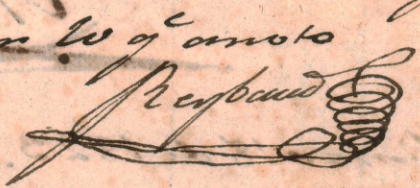 lo q.e anoto
Reybaud